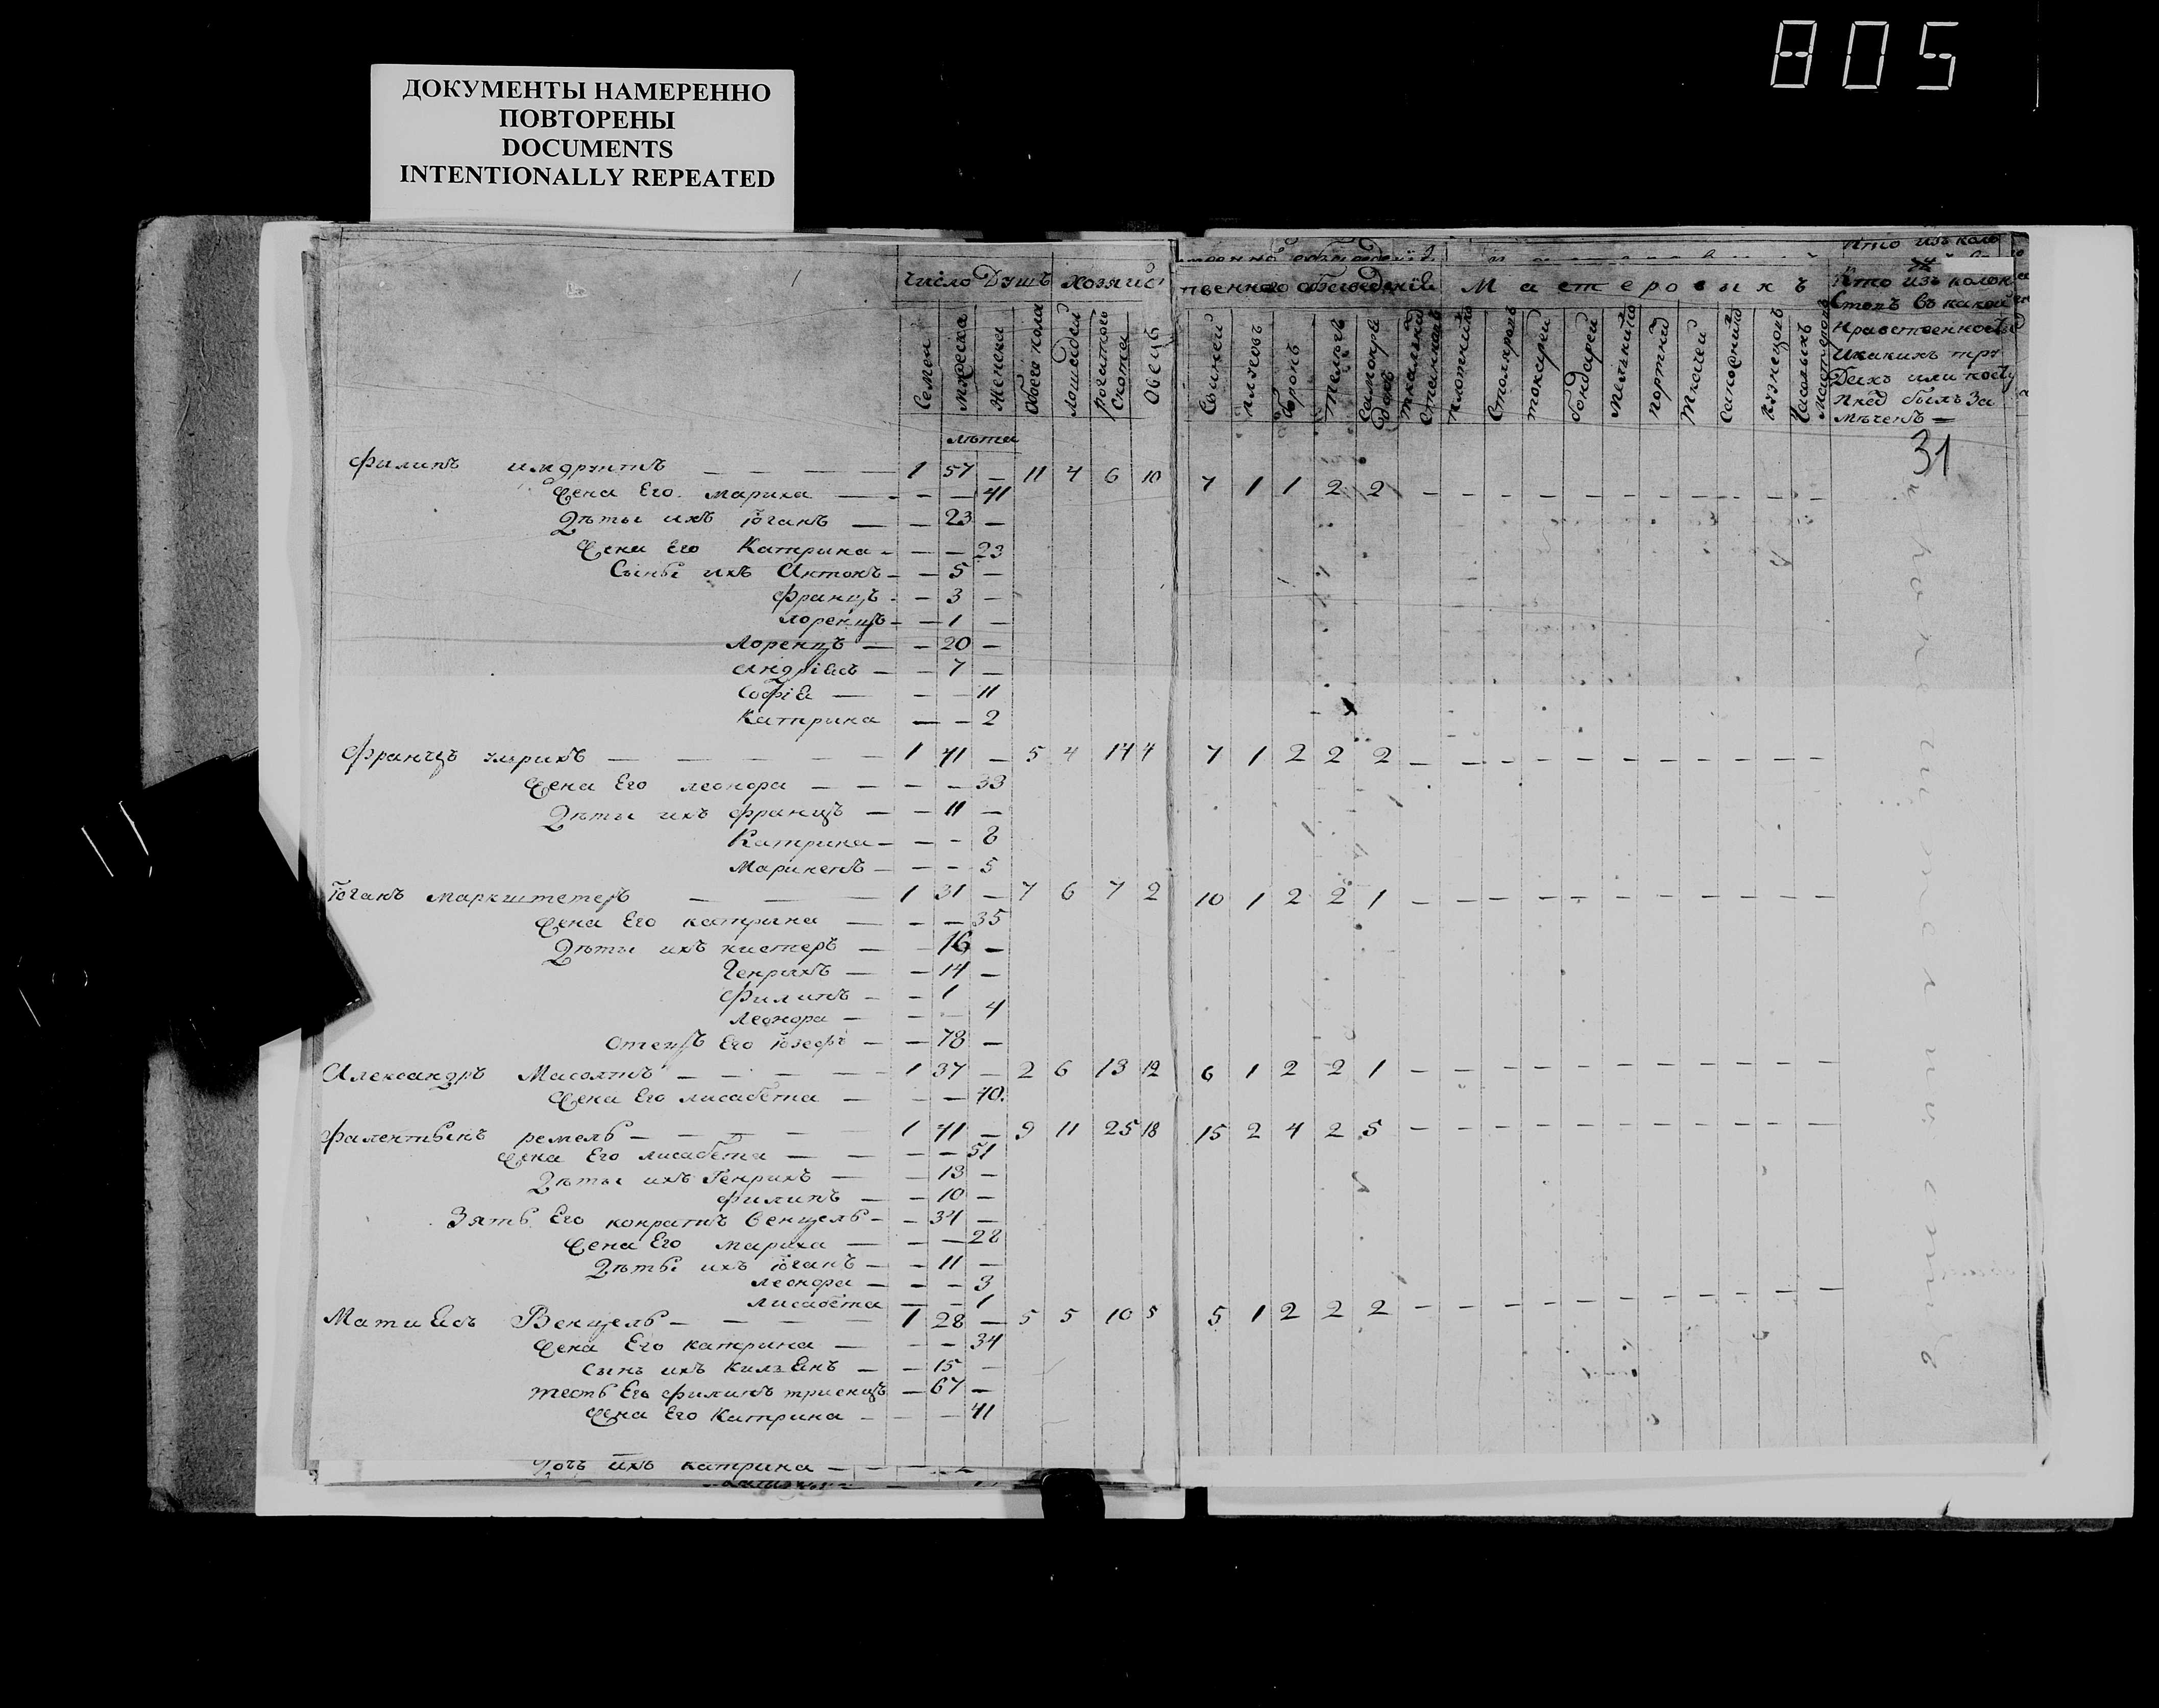 805
ДОКУМЕНТЫ НАМЕРЕННО
ПОВТОРЕНЫ
DOCUMENTS
INTENTIONALLY REPEATED
число Душъ хозяйс
твенного обзаведенія Мастеровыхъ
Кто изъ колон
истовъ въ какой
нравственности
и какихъ
или
былъ за
мѣченъ =
Семей
Мужеска
Женска
Обоего пола
Лошадей
рогатого Скота
Овецъ
Свиней
плуговъ
боронъ
телегъ
Самопря
ткальныхъ Становъ
плотниковъ
Столяровъ
токарей
бондарей
Мельниковъ
портныхъ
Ткачей
Сапожниковъ
кузнецовъ
лѣта
31
филипъ — — — — 1 57 — 11 4 6 10 7 1 1 2 2 — — — — — — — — — — —
Жена Его Мариха — — — 41
Дѣты ихъ іоганъ — — 23 —
Жена Его Катрина — — — 23
Сыны ихъ Антонъ — — 5 —
Францъ — — 3 —
лоренцъ — — 1 —
Лоренцъ — — 20 —
Андріасъ — — 7 —
Софіа — — — 11
Катрина — — 2
Францъ улрихъ — — — — — 1 41 — 5 4 14 4 7 1 2 2 2 — — — — — — — — — — —
Жена Его леонора — — — — 33
Дѣты ихъ францъ — — 11 —
Катрина — — — 8
Марикетъ — — — 5
іоганъ маркштетеръ — — — 1 31 — 7 6 7 2 10 1 2 2 1 — — — — — — — — — — —
Жена Его катрина — — — 35
Дѣты ихъ пиетеръ — — 16 —
Генрихъ — — 14 —
Филипъ — — 1
Леонора — — — 4
Отецъ Его іозефъ — — 78 —
Александръ Масолтъ — — — — — 1 37 — 2 6 13 12 6 1 2 2 1 — — — — — — — — — — —
Жена Его лисабета — — — 70
фалентынъ ремель — — — — — 1 41 — 9 11 25 18 15 2 4 2 5 — — — — — — — — — — —
Жена Его лисабета — — — — 51
Дѣты ихъ Генрихъ — — 13 —
филипъ — — 10 —
Зять Его конратъ Венцель — — 34 —
Жена Его мариха — — — 28
Дѣты ихъ іоганъ — — 11 —
леонора — — — 3
лисабета — — 1
Матиасъ Венцель — — — — 1 28 — 5 5 10 5 5 1 2 2 2 — — — — — — — — — — —
Жена Его катрина — — — 34
Сынъ ихъ Килианъ — — 15 —
тесть Его филипъ — 67 —
Жена Его Катрина — — — 41
Дочь ихъ катрина — — — —